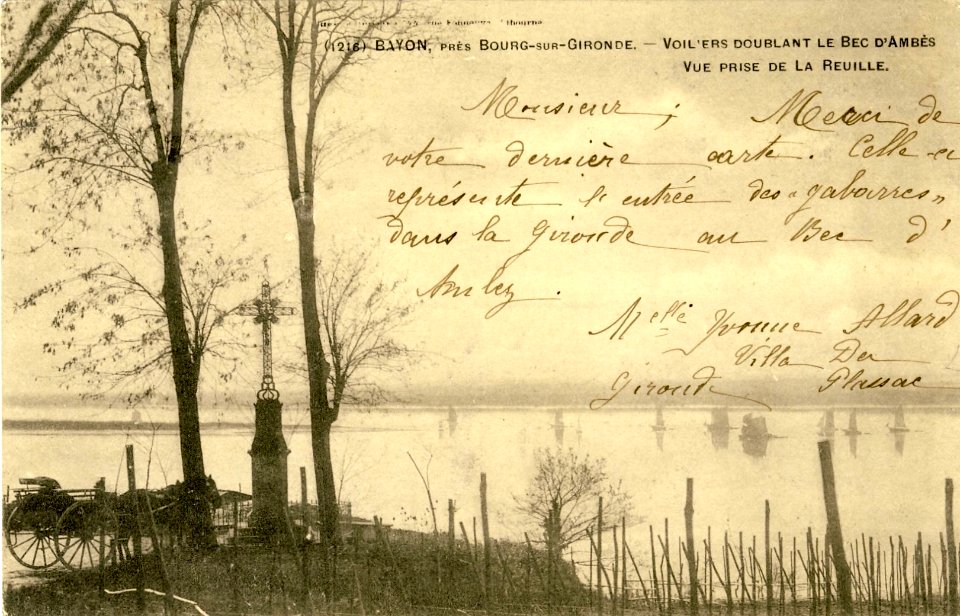 (1216) BAYON, PRÈS BOURG-SUR-GIRONDE. — VOIL'ERS DOUBLANT LE BEC D'AMBÈS
VUE PRISE DE LA REUILLE.
Monsieur, Merci de
votre dernière carte. Celle-ci
représente l'entrée des "gabarres"
dans la Gironde au Bec d'
Ambez.
Melle Yvonne Allard
Villa
Gironde Plassac